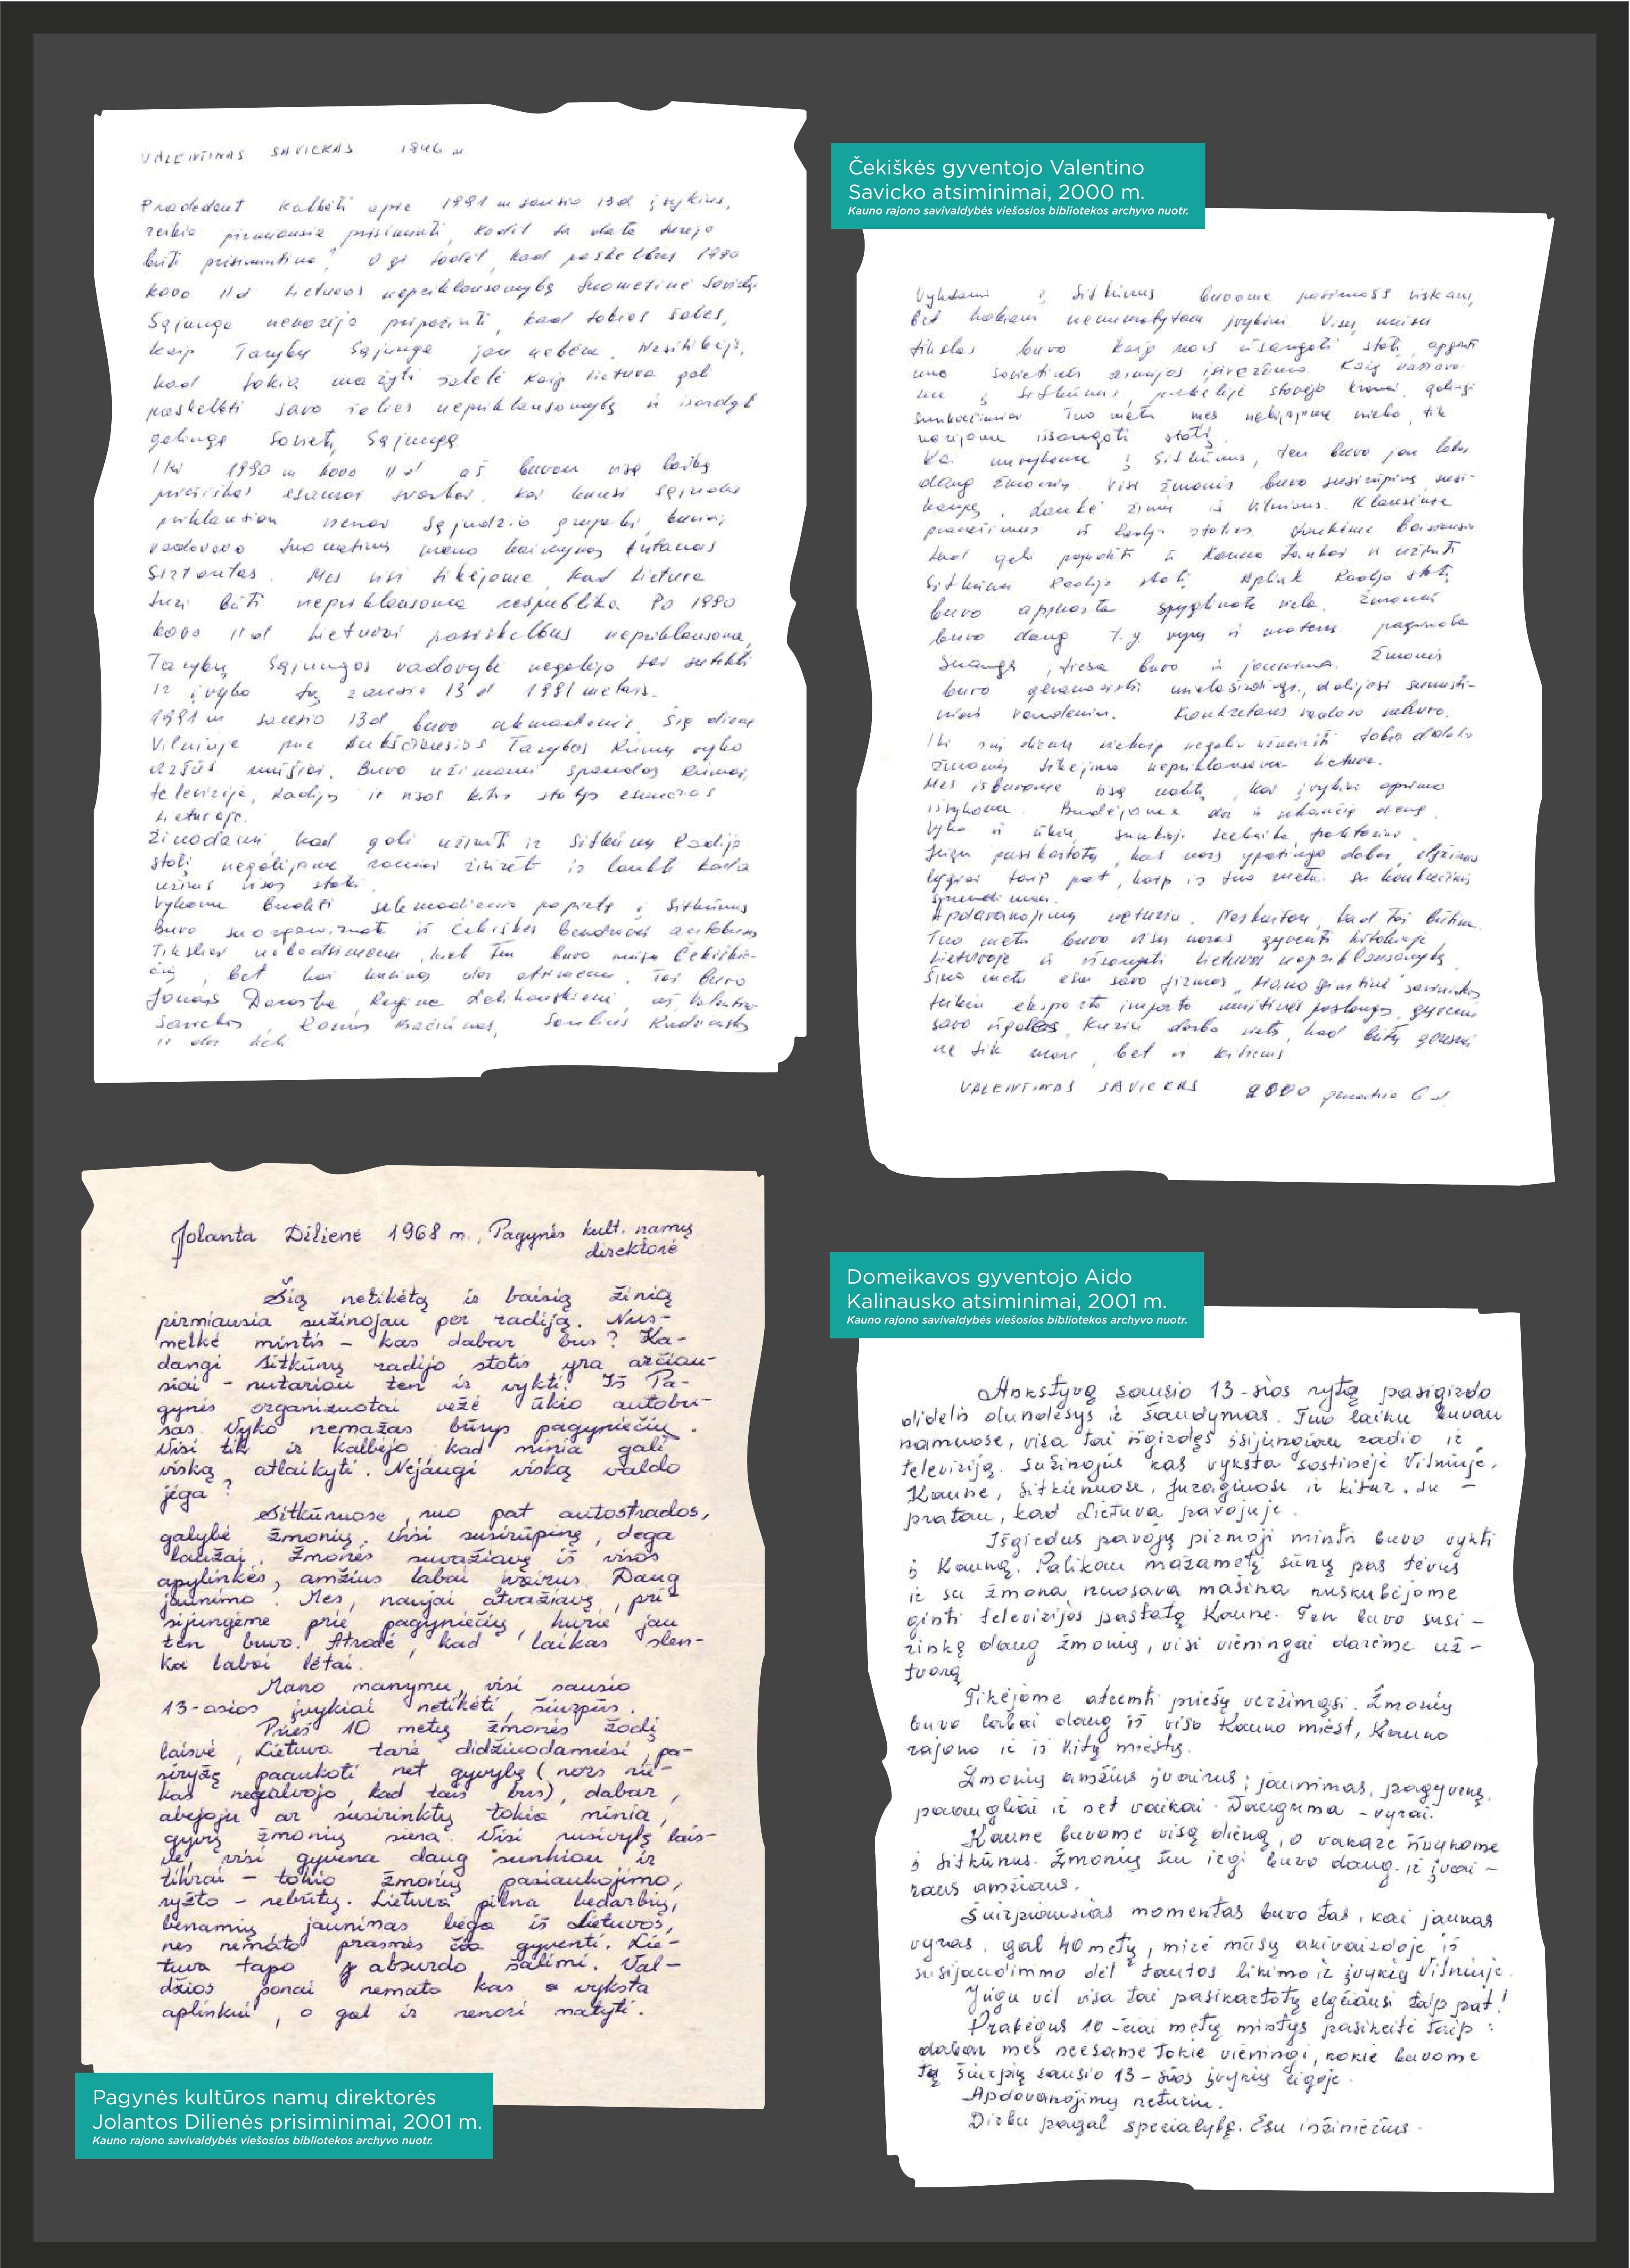 VALENTINAS SAVICKAS 1946 m
Pradedant kalbėti apie 1991 m sausio 13d įvykius,
reikia pirmiausia prisiminti, kodėl ta data turėjo
būti prisimintina? O gi todėl, kad paskelbus 1990
kovo 11d Lietuvos nepriklausomybę tuometinė Sovietų
Sąjunga nenorėjo pripažinti, kad tokios šalies,
kaip Tarybų Sąjunga jau nebėra. Nesitikėjo,
kad tokia mažytė šalelė kaip Lietuva gali
paskelbti savo šalies nepriklausomybę ir išardyti
galingą Sovietų Sąjungą.
Iki 1990 m kovo 11d aš buvau visą laiką
priešiškas esamai tvarkai. Kai kūrėsi Sąjūdis
priklausiau vienai Sąjūdžio grupelei, kuriai
vadovavo tuometinis mano kaimynas Antanas
Mes visi tikėjome, kad Lietuva
turi būti nepriklausoma respublika. Po 1990
kovo 11d Lietuvai pasiskelbus nepriklausoma,
Tarybų Sąjungos vadovybė negalėjo tai sutikti
ir įvyko tą sausio 13d 1991 metais.
1991 m sausio 13d buvo sekmadienis. Šią dieną
Vilniuje prie Aukščiausios Tarybos Rūmų vyko
aršūs mūšiai. Buvo užimami spaudos Rūmai,
televizija, Radijo ir visos kitos stotys esančios
Lietuvoje.
Žinodami, kad gali užimti ir Sitkūnų Radijo
stotį negalėjome ramiai žiūrėt ir laukti kada
užims visas stotis.
Vykome budėti sekmadienio popietę į Sitkūnus
Buvo suorganizuota iš Čekiškės bendrovės autobusas
Tiksliai nebeatsimenu, kiek ten buvo mūsų Čekiškie-
čių, bet kai kuriuos dar atsimenu. Tai buvo
Jonas Regina aš, Valentinas
Savickas, Romas Saulius
ir dar keli
Čekiškės gyventojo Valentino
Savicko atsiminimai, 2000 m.
Kauno rajono savivaldybės viešosios bibliotekos archyvo nuotr.
Vykdami į Sitkūnus buvome pasiruošę viskam,
bet kokiam nenumatytam įvykiui. Visų mūsų
tikslas buvo kaip nors išsaugoti stotį, apginti
nuo sovietinės armijos įsiveržimo. Kaip važiavo-
me į Sitkūnus, pakelėje stovėjo kranai, galingi
sunkvežimiai. Tuo metu mes nebijojome nieko, tik
norėjome išsaugoti stotį.
Kai nuvykome į Sitkūnus, ten buvo jau labai
daug žmonių. Visi žmonės buvo susirūpinę, susi-
kaupę, laukė žinių iš Vilniaus. Klausėmės
pranešimus iš Radijo stoties. Laukėme baisiausio
kad gali pajudėti iš Kauno tankai ir užimti
Sitkūnų Radijo stotį. Aplink Radijo stotį
buvo apjuosta spygliuota viela. Žmonių
buvo daug t.y. vyrų ir moterų, pagrinde
suaugę, tiesa buvo ir jaunimo. Žmonės
buvo geranoriški nuoširdūs, dalijosi sumušti-
niais vandeniu. Konkretaus vadovo nebuvo.
Iki šių dienų niekaip negaliu užmiršti tokio didelio
žmonių tikėjimo nepriklausoma Lietuva.
Mes išbuvome visą naktį, kai įvykiai aprimo
išvykome. Budėjome dar ir sekančią dieną.
Vyko iš ūkių sunkioji technika traktoriai.
Jeigu pasikartotų, kas nors ypatingo dabar, elgčiaus
lygiai taip pat, kaip ir tuo metu su konkrečiais
sprendimais.
Apdovanojimų neturiu. Neskaitau, kad tai būtina.
Tuo metu buvo visų noras gyventi kitokioje
Lietuvoje ir išsaugoti Lietuvos nepriklausomybę.
Šiuo metu esu savo firmos „Mano gimtinė" savininkas
teikiu eksporto importo muitinės paslaugas, gyvenu
savo jėgomis, kuriu darbo vietas, kad būtų geresnis
ne tik man, bet ir kitiems.
VALENTINAS SAVICKAS 2000 gruodžio 6 d.
Jolanta Dilienė 1968 m., Pagynės kult. namų
direktorė
Šią netikėtą ir baisią žinią
pirmiausia sužinojau per radiją. Nus-
melkė mintis – kas dabar bus? Ka-
dangi Sitkūnų radijo stotis yra arčiau-
siai – nutariau ten ir vykti. Iš Pa-
gynės organizuotai vežė ūkio autobu-
sas. Vyko nemažas būrys pagyniečių.
Visi tik ir kalbėjo kad minia gali
viską atlaikyti. Nejaugi viską valdo
jėga?
Sitkūnuose, nuo pat autostrados,
galybė žmonių. Visi susirūpinę, dega
laužai. Žmonės suvažiavę iš visos
apylinkės, amžius labai įvairus. Daug
jaunimo. Mes, naujai atvažiavę, pri-
sijungėme prie pagyniečių, kurie jau
ten buvo. Atrodė, kad laikas slen-
ka labai lėtai.
Mano manymu, visi sausio
13-osios įvykiai netikėti, šiurpūs.
Prieš 10 metų žmonės žodį
laisvė, Lietuva tarė didžiuodamiesi, pa-
siryžę paaukoti net gyvybę (nors nie-
kas negalvojo, kad tais bus), dabar,
abejoju ar susirinktų tokia minia,
gyvų žmonių siena. Visi nusivylę lais-
ve, visi gyvena daug sunkiau ir
tikrai – tokio žmonių pasiaukojimo,
ryžto – nebūtų. Lietuva pilna bedarbių,
benamių, jaunimas bėga iš Lietuvos,
nes nemato prasmės čia gyventi. Lie-
tuva tapo absurdo šalimi. Val-
džios ponai nemato kas vyksta
aplinkui, o gal ir nenori matyti.
Pagynės kultūros namų direktorės
Jolantos Dilienės prisiminimai, 2001 m.
Kauno rajono savivaldybės viešosios bibliotekos archyvo nuotr.
Domeikavos gyventojo Aido
Kalinausko atsiminimai, 2001 m.
Kauno rajono savivaldybės viešosios bibliotekos archyvo nuotr.
Ankstyvą sausio 13-sios rytą pasigirdo
didelis dundesys ir šaudymas. Tuo laiku buvau
namuose, visa tai išgirdęs įsijungiau radio ir
televiziją. Sužinojus kas vyksta sostinėje Vilniuje,
Kaune, Sitkūnuose, Juragiuose ir kitur. Su-
pratau, kad Lietuva pavojuje.
Išgirdus pavojų pirmoji mintis buvo vykti
į Kauną. Palikau mažametį sūnų pas tėvus
ir su žmona nuosava mašina nuskubėjome
ginti televizijos pastatą Kaune. Ten buvo susi-
rinkę daug žmonių, visi vieningai darėme už-
tvarą
Tikėjome atremti priešų veržimąsi. Žmonių
buvo labai daug iš viso Kauno miest, Kauno
rajono ir iš kitų miestų.
Žmonių amžius įvairus; jaunimas, pagyvenę,
paaugliai ir net vaikai. Dauguma – vyrai.
Kaune buvome visą dieną, o vakare išvykome
į Sitkūnus. Žmonių ten irgi buvo daug. ir įvai-
raus amžiaus.
Šiurpiausias momentas buvo tas, kai jaunas
vyras, gal 40 metų, mirė mūsų akivaizdoje iš
susijaudimmo dėl tautos likimo ir įvykių Vilniuje.
Jeigu vėl visa tai pasikartotų elgčiausi taip pat!
Prabėgus 10-čiai metų mintys pasikeitė taip:
dabar mes nesame tokie vieningi, kokie buvome
tų šiurpių sausio 13-sios įvykių eigoje.
Apdovanojimų neturiu.
Dirbu pagal specialybę. Esu inžinierius.